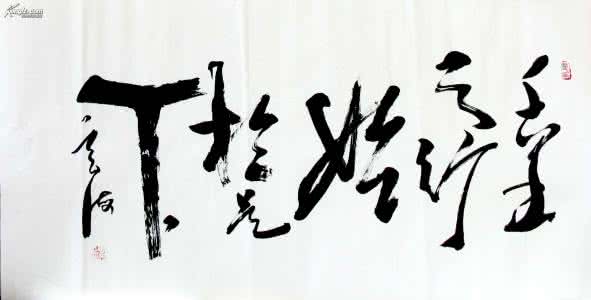 千里
之行
始
於足
下